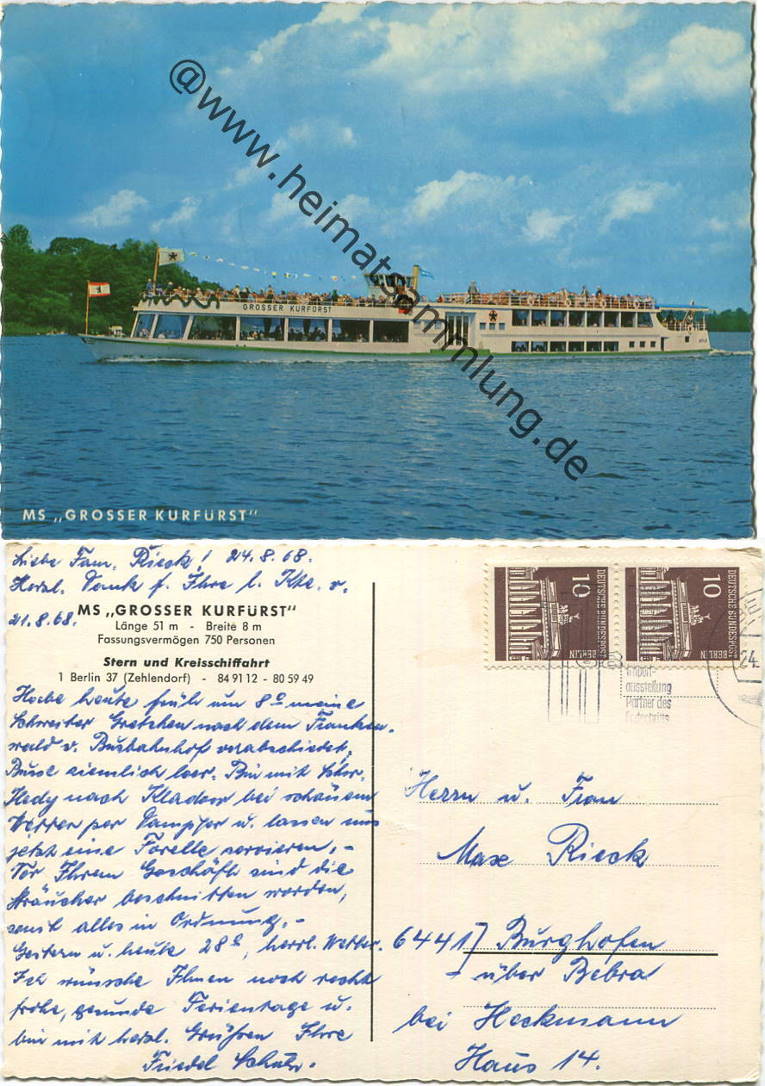 @www.heimatsammlung.de
GROSSER KURFÜRST
MS „GROSSER KURFÜRST"
Liebe Fam. Rieck! 24.8.68.
Herzl. Dank f. Ihre l. Kte. v.
21.8.68.
MS „GROSSER KURFÜRST"
Länge 51 m - Breite 8 m
Fassungsvermögen 750 Personen
Stern und Kreisschiffahrt
1 Berlin 37 (Zehlendorf) - 84 91 12 - 80 59 49
Habe heute früh um 8⁰ meine
Schwester Gretchen nach dem Franken-
wald v. Busbahnhof verabschiedet,
Busse ziemlich leer. Bin mit Schw.
Hedy nach Kladow bei schönem
Wetter per Dampfer u. lassen uns
jetzt eine Forelle servieren.-
Vor Ihrem Geschäft sind die
Sträucher beschnitten worden,
sonst alles in Ordnung.-
Gestern u. heute 28⁰, herrl. Wetter.
Ich wünsche Ihnen noch recht
frohe, gesunde Ferientage u.
bin mit herzl. Grüßen Ihre
Friedel
10
DEUTSCHE BUNDESPOST
BERLIN
10
DEUTSCHE BUNDESPOST
BERLIN
24.
Import-
ausstellung
Partner des
Fortschritts
Herrn u. Frau
Max Rieck
6441 Burghofen
über Bebra
bei Heckmann
Haus 14.